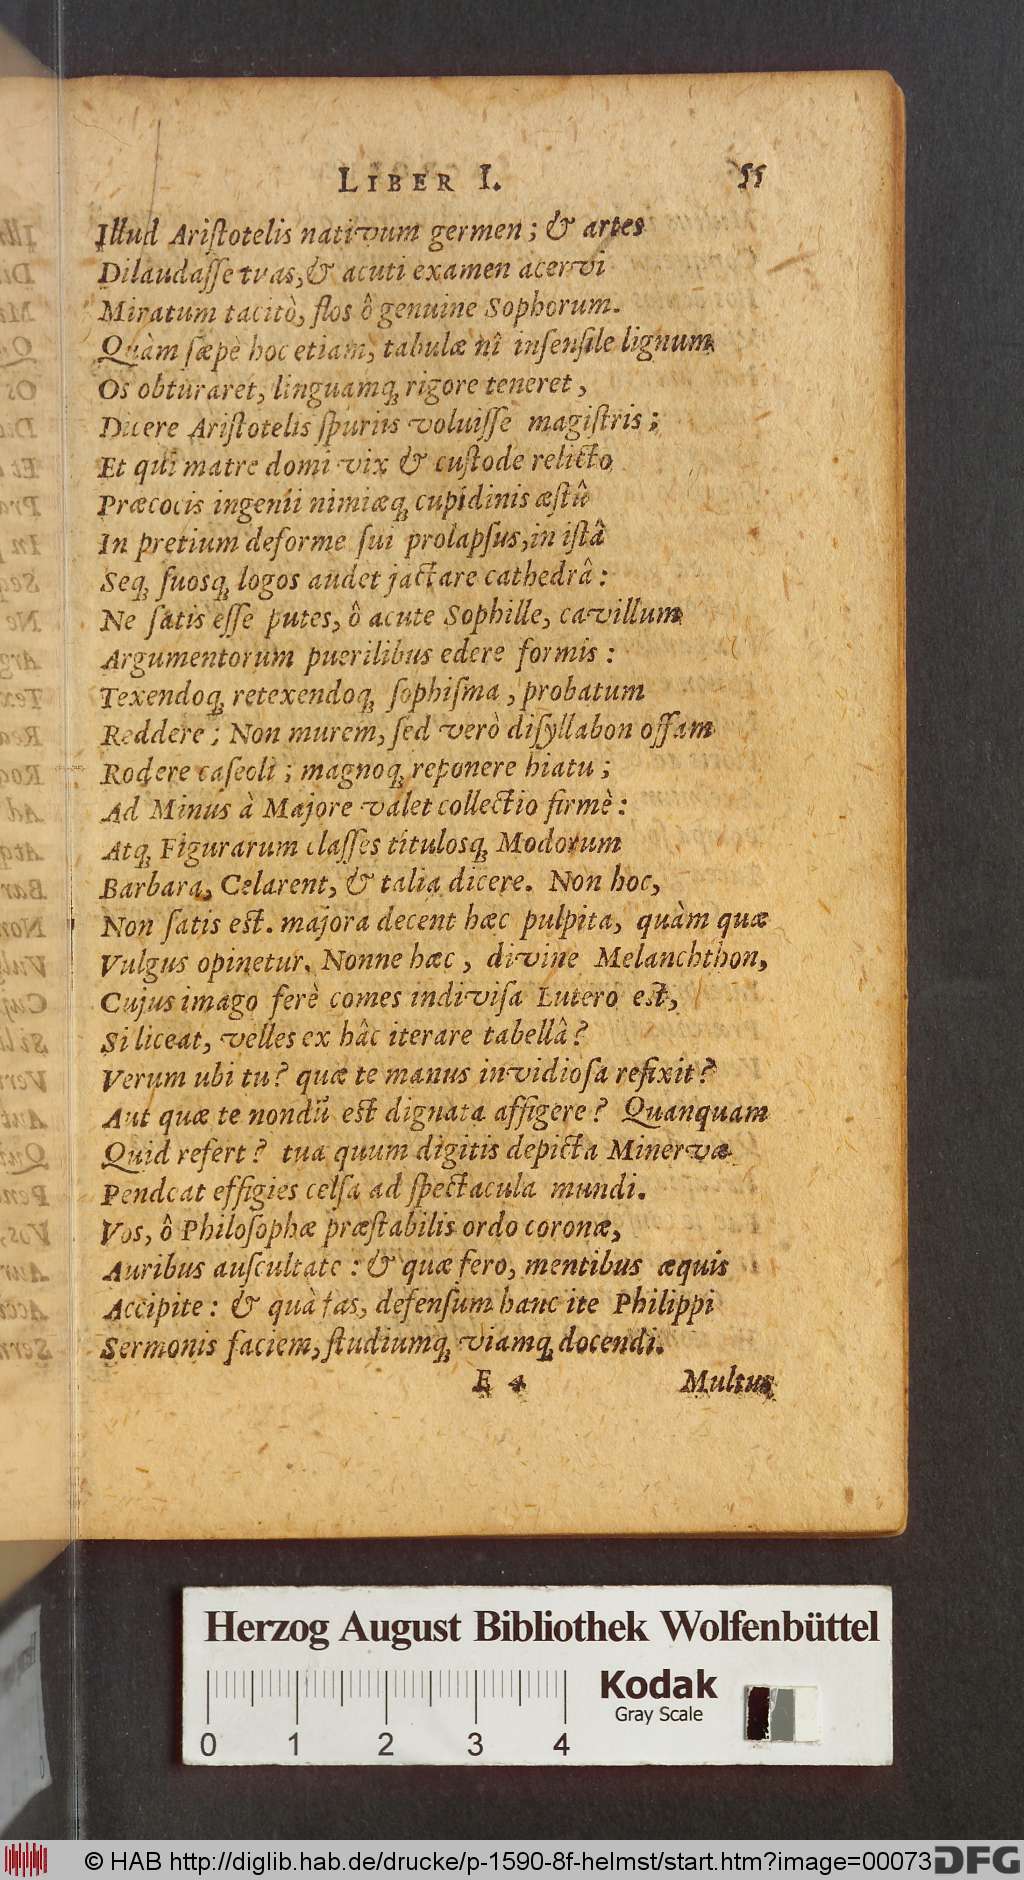 LIBER I. 55
Illud Ariſtotelis nativum germen; & artes
Dilaudaſſe tvas, & acuti examen acervi
Miratum tacitò, flos ô genuine Sophorum.
Quàm ſæpè hoc etiam, tabulæ nî inſenſile lignum
Os obturaret, linguamq́; rigore teneret,
Dicere Ariſtotelis ſpuriis voluiſſe magiſtris;
Et qui matre domi vix & cuſtode relicto
Præcocis ingenii nimiæq́; cupidinis æſtû
In pretium deforme ſui prolapſus, in iſtâ
Seq́; ſuosq́; logos audet jactare cathedrâ:
Ne ſatis eſſe putes, ô acute Sophille, cavillum
Argumentorum puerilibus edere formis:
Texendoq́; retexendoq́; ſophiſma, probatum
Reddere; Non murem, ſed verò diſyllabon oſſam
Rodere caſeoli; magnoq́; reponere hiatu;
Ad Minus à Majore valet collectio firmè:
Atq́; Figurarum claſſes titulosq́; Modorum
Barbara, Celarent, & talia dicere. Non hoc,
Non ſatis est. majora decent hæc pulpita, quàm quæ
Vulgus opinetur. Nonne hæc, divine Melanchthon,
Cujus imago ferè comes indiviſa Lutero est,
Si liceat, velles ex hâc iterare tabellâ?
Verum ubi tu? quæ te manus invidioſa refixit?
Aut quæ te nondū est dignata affigere? Quanquam
Quid refert? tua quum digitis depicta Minervæ
Pendeat effigies celſa ad ſpectacula mundi.
Vos, ô Philoſophæ præſtabilis ordo coronæ,
Auribus auſcultate: & quæ fero, mentibus æquis
Accipite: & quà fas, defenſum hanc ite Philippi
Sermonis faciem, ſtudiumq́; viamq́; docendi.
E 4 Multus
Herzog August Bibliothek Wolfenbüttel
Kodak
Gray Scale
0 1 2 3 4
© HAB http://diglib.hab.de/drucke/p-1590-8f-helmst/start.htm?image=00073
DFG